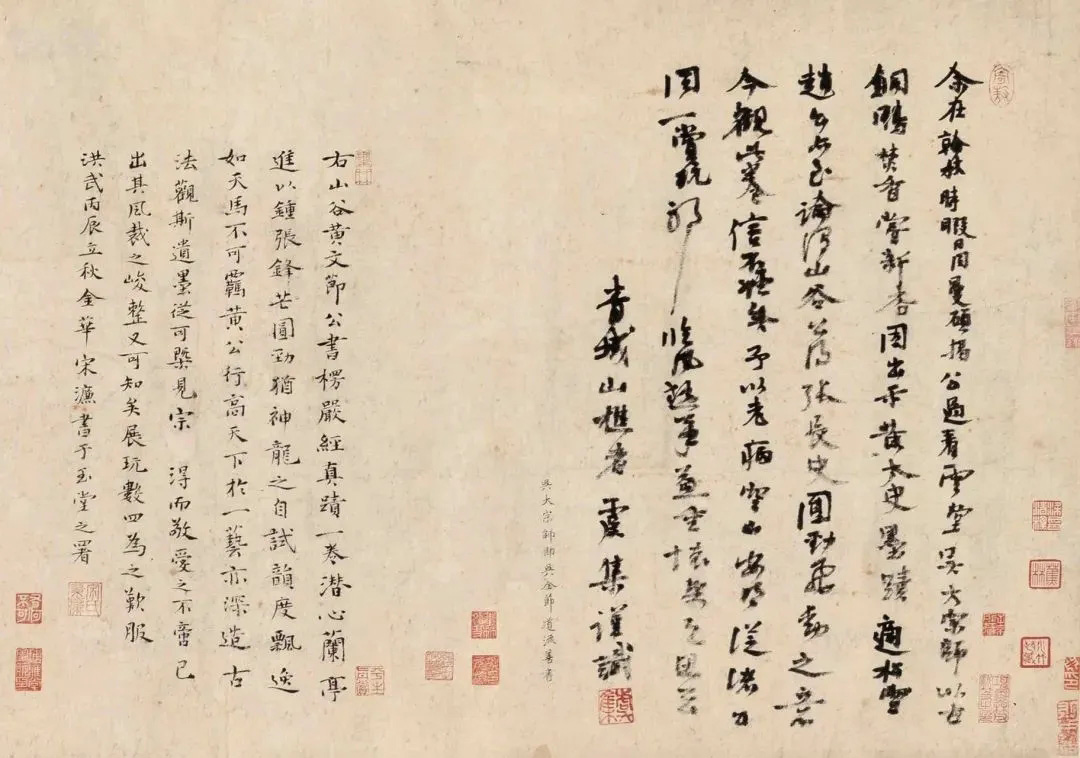 余在翰林時暇日同曼碩揭公過看雲堂吳大宗師以古
銅鴨焚香嘗新杏因出示黃太史墨蹟適松雪
趙公亦至論浔山谷公藁張長史圓勁飛動之意
今觀此卷信然予以老病空山安浔從諸公
同一賞玩邪臨風執筆
青城山樵者虞集謹識
吳大宗師即吳全節道流善者
右山谷黃文節公書楞嚴經真蹟一卷潜心蘭亭
進以鍾張鋒芒圓勁猶神龍之自試韻度飄逸
如天馬不可羈黃公行高天下於一藝亦深造古
法觀斯遺墨從可槩見宗 淂而敬愛之不啻已
出其風裁之峻整又可知矣展玩數四為之歎服
洪武丙辰立秋金華宋濂書于玉堂之署